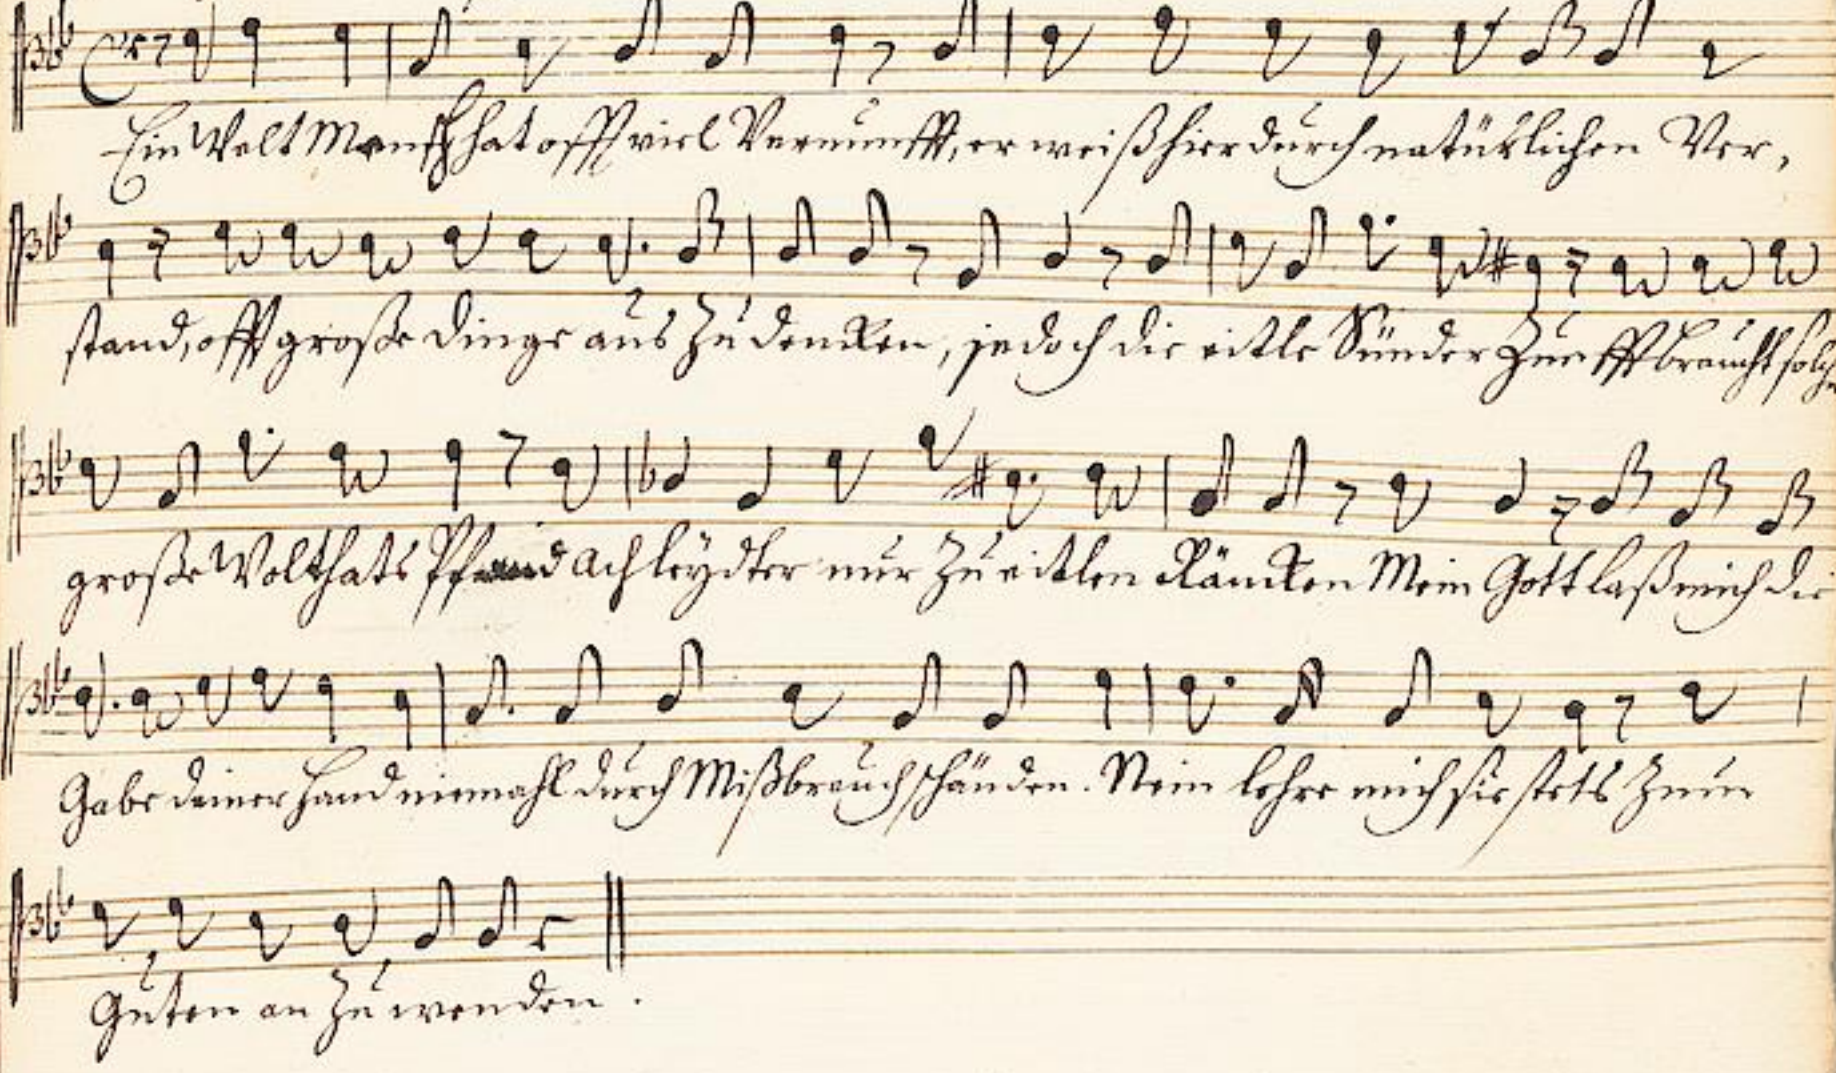 Ein Welt Mensch hat offt viel Vernunfft, er weiß hier durch natürlichen Ver,
stand, offt große dinge aus zu dencken, jedoch die eitle Sünder Zunfft braucht solch
große Wolthats Pfand ach leyder nur zu eitlen Räncken Mein Gott laß mich die
Gabe deiner Hand niemahl durch Mißbrauch schänden. Nein lehre mich sie stets zum
Guten an zu wenden.